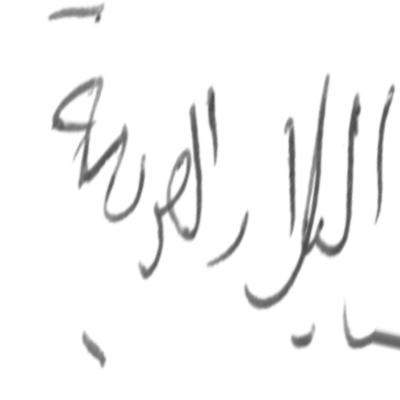 البلاد العربية